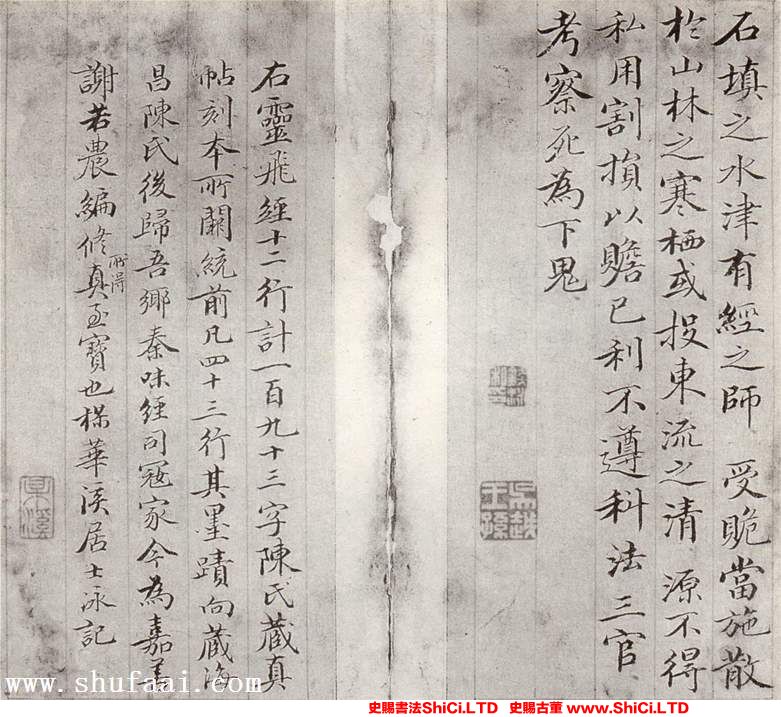 石填之水津有經之師 受賍當施散
於山林之寒栖或投東流之清 源不得
私用割損以贍已利不遵科法三官
考察死為下鬼
右靈飛經十二行計一百九十三字陳氏藏真
帖刻本所闕統前凡四十三行其墨蹟向藏海
昌陳氏後歸吾鄉秦味經司寇家今為嘉善
謝若農編修所得真至寶也楳華溪居士泳記
www.shufaai.com
史賜書法ShiCi.LTD 史賜古董 www.ShiCi.LTD